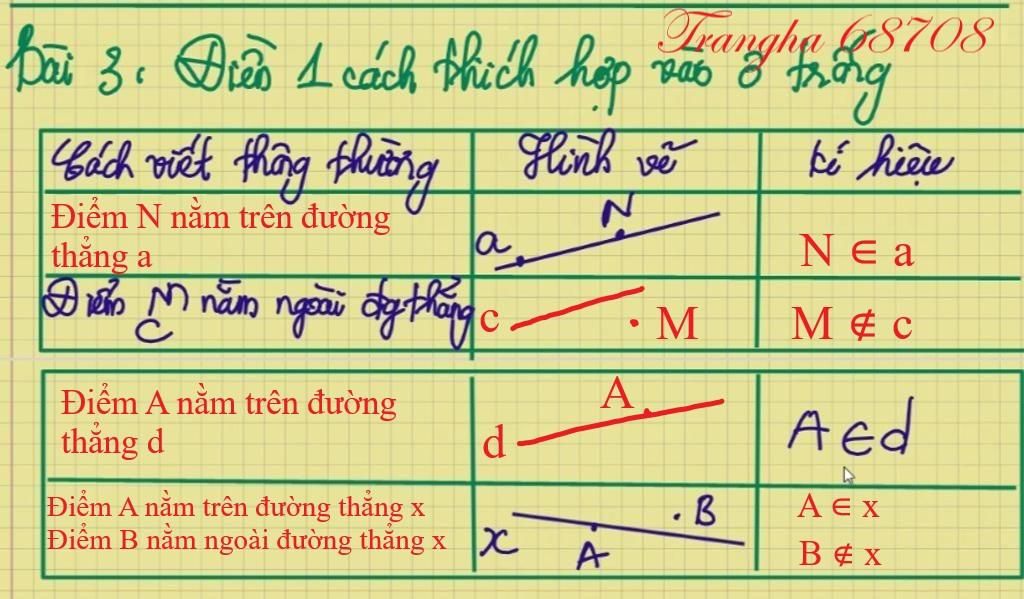 Trangha 68708
Bài 3: Điền 1 cách thích hợp vào ô trống
Cách viết thông thường
Hình vẽ
kí hiệu
Điểm N nằm trên đường
thẳng a
a
N
N ∈ a
Điểm M nằm ngoài đg thẳng
C
c
M
M ∉ c
Điểm A nằm trên đường
thẳng d
d
A
A ∈ d
Điểm A nằm trên đường thẳng x
Điểm B nằm ngoài đường thẳng x
x
A
B
A ∈ x
B ∉ x